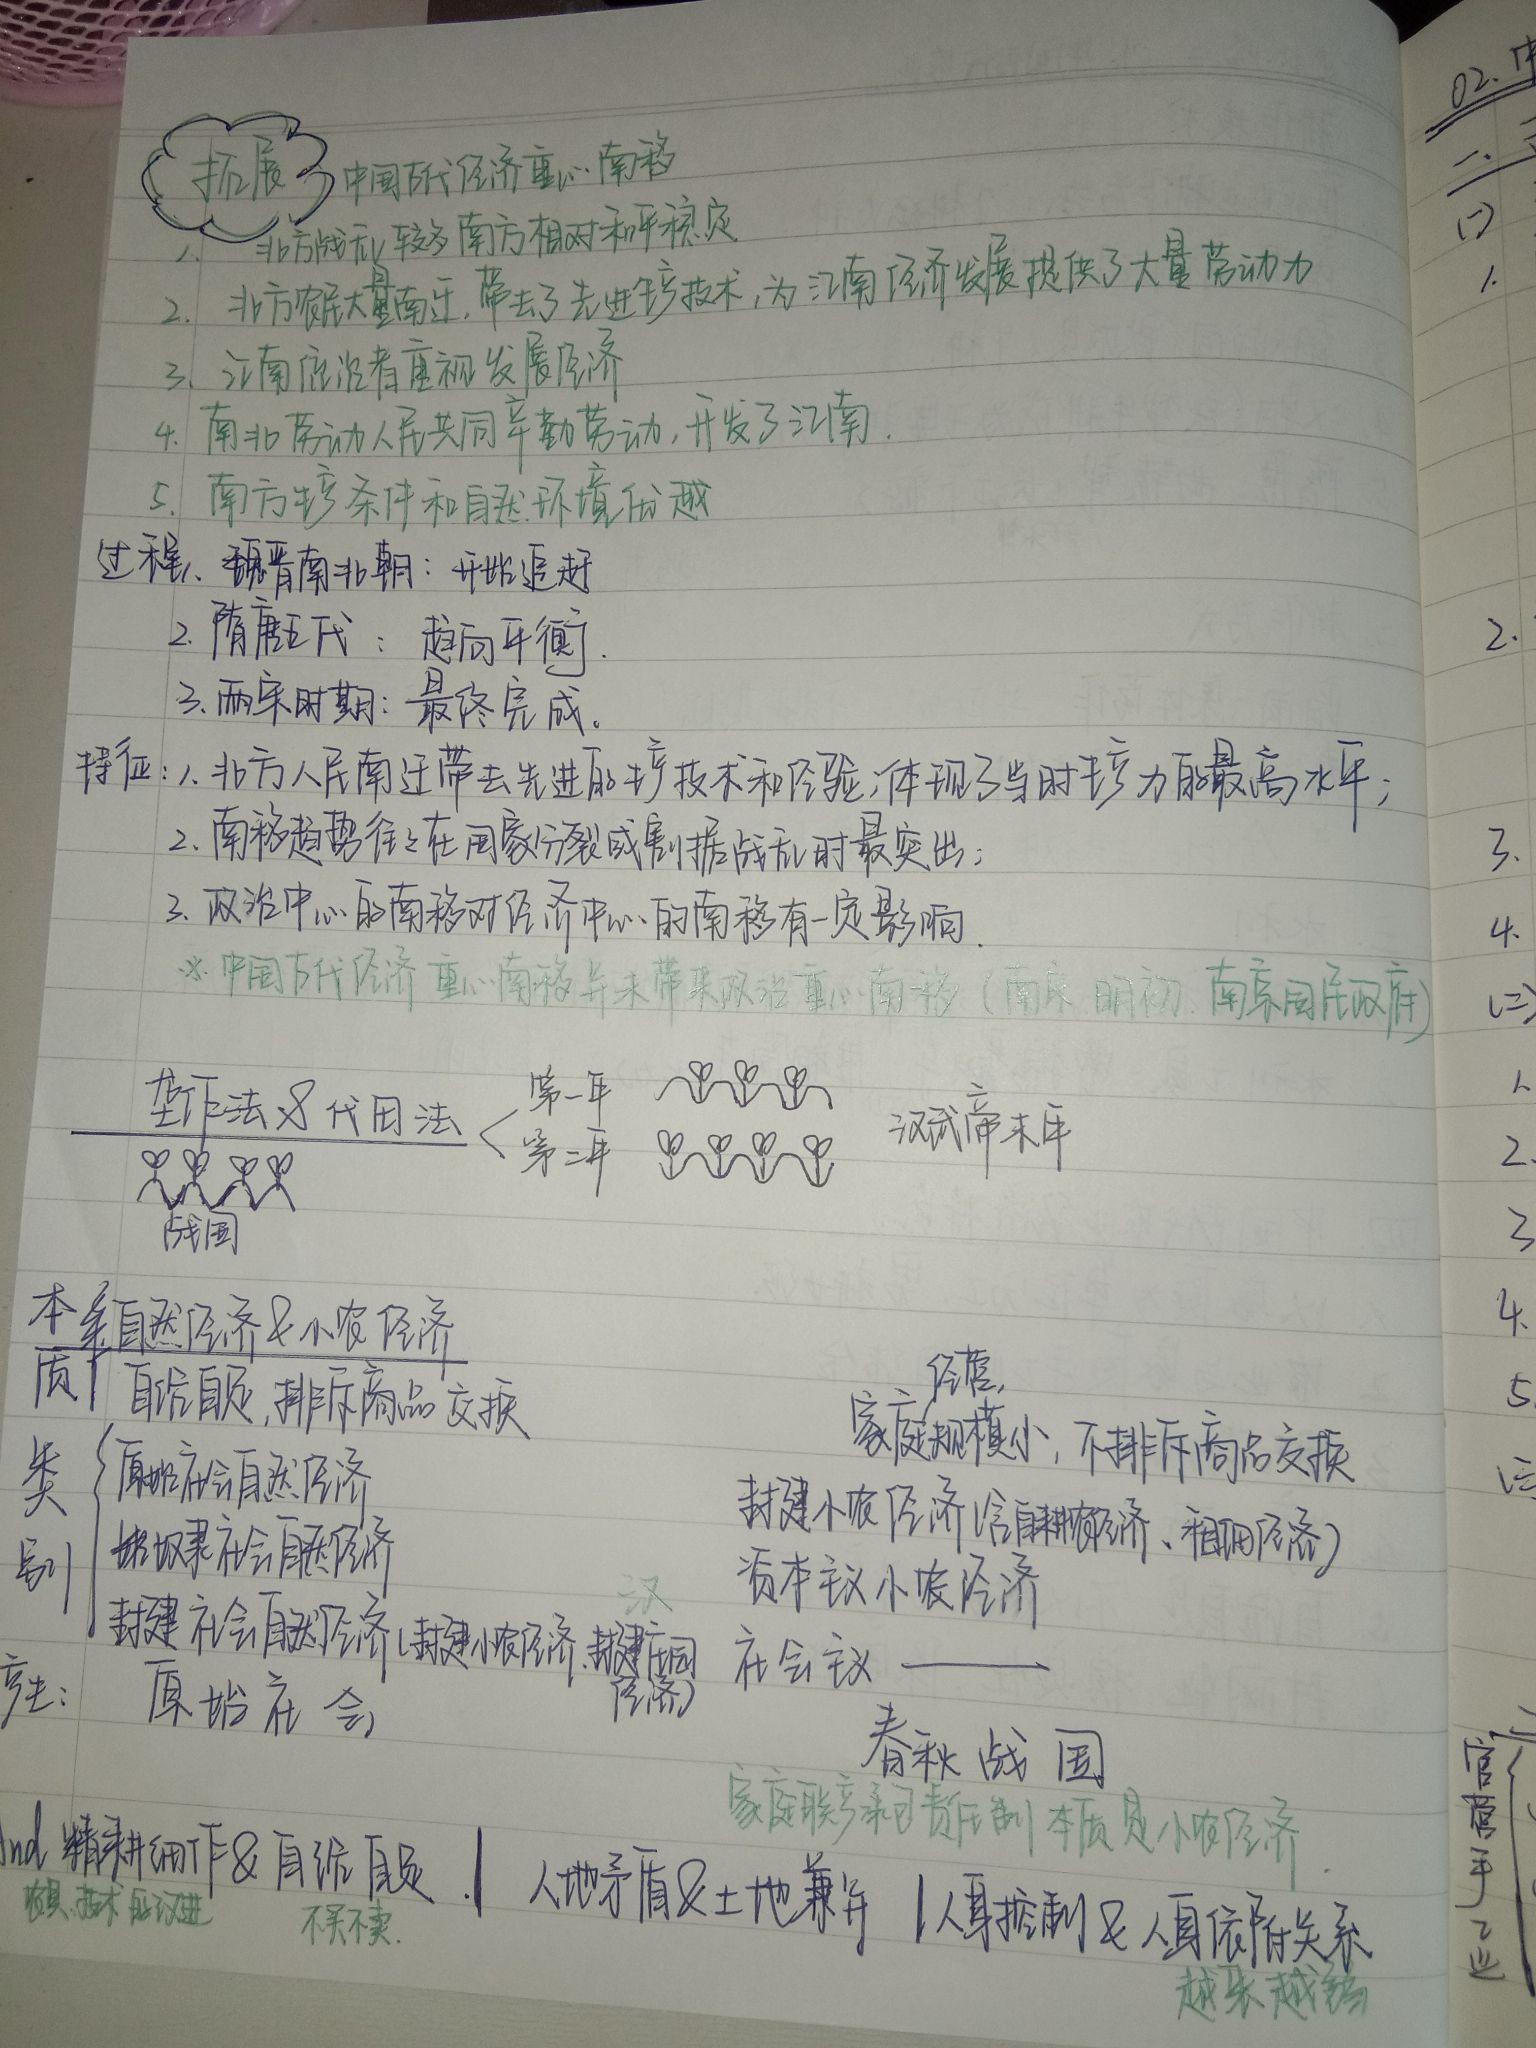 拓展 中国古代经济重心南移
1. 北方战乱较多南方相对和平稳定
2. 北方农民大量南迁,带去了先进生产技术,为江南经济发展提供了大量劳动力
3. 江南统治者重视发展经济
4. 南北劳动人民共同辛勤劳动,开发了江南.
5. 南方生产条件和自然环境优越
过程1. 魏晋南北朝: 开始追赶
2. 隋唐五代: 趋向平衡.
3. 两宋时期: 最终完成.
特征:1. 北方人民南迁带去先进的生产技术和经验,体现了当时生产力的最高水平;
2. 南移趋势往往在国家分裂或割据战乱时最突出;
3. 政治中心的南移对经济中心的南移有一定影响.
※. 中国古代经济重心南移并未带来政治重心南移(南宋 明初. 南京国民政府)
垄作法&代田法 第一年
第二年 汉武帝末年
战国
本质 自然经济&小农经济
自给自足,排斥商品交换
经营,
家庭规模小,不排斥商品交换
类别 原始社会自然经济
封建小农经济(含自耕农经济、租佃经济)
奴隶社会自然经济
资本主义小农经济
汉
封建社会自然经济(封建小农经济、封建庄园经济)
社会主义 ——
产生: 原始社会
春秋战国
家庭联产承包责任制 本质是小农经济.
And 精耕细作&自给自足. | 人地矛盾&土地兼并 | 人身控制&人身依附关系
农具、技术的改进 不买不卖.
02.
一.
(一)
1.
2.
3.
4.
(二)
1.
2.
3
4.
5.
(三)
官营手工业